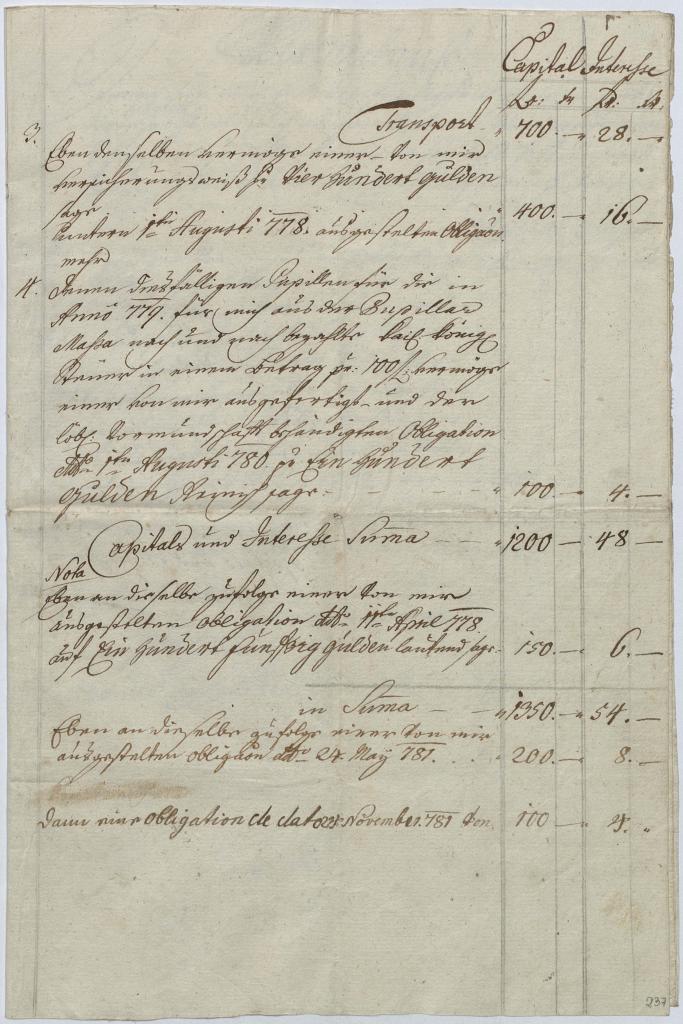 Capital Interesse
fl: kr fl: kr.
Transport " 700. — " 28. —
3. Eben denselben vermögs einer von mir
versicherungsweiß pr Vier Hundert Gulden
sage
untern 1ten Augusti 778. ausgestelten Obligaõn " 400. — " 16. —
mehr
4. Denen diesfälligen Pupillen für die in
Anno 779. für mich aus der Pupillar
Massa nach und nach bezahlte kais. königl
Steuer in einem Betrag pr: 100 f: vermögs
einer von mir ausgefertigt- und der
löbl: Vormundschafft behändigten Obligation
ddto 1ten Augusti 780. pr Ein Hundert
Gulden sage " 100. — " 4. —
Capitals und Interesse Suma — — " 1200 — " 48 —
Nota
Eben an dieselbe zufolge einer von mir
ausgestelten obligation ddto 11ten April 778
auf Ein Hundert fünffzig Gulden lautend sage " 150. — " 6. —
in Suma — — " 1350. — " 54. —
Eben an dieselbe zufolge einer von mir
ausgestelten obligaõn ddto 24. May 781. . . " 200. — " 8. —
Dann eine obligation de dato 24. November. 781 von 100 — " 4. "
237